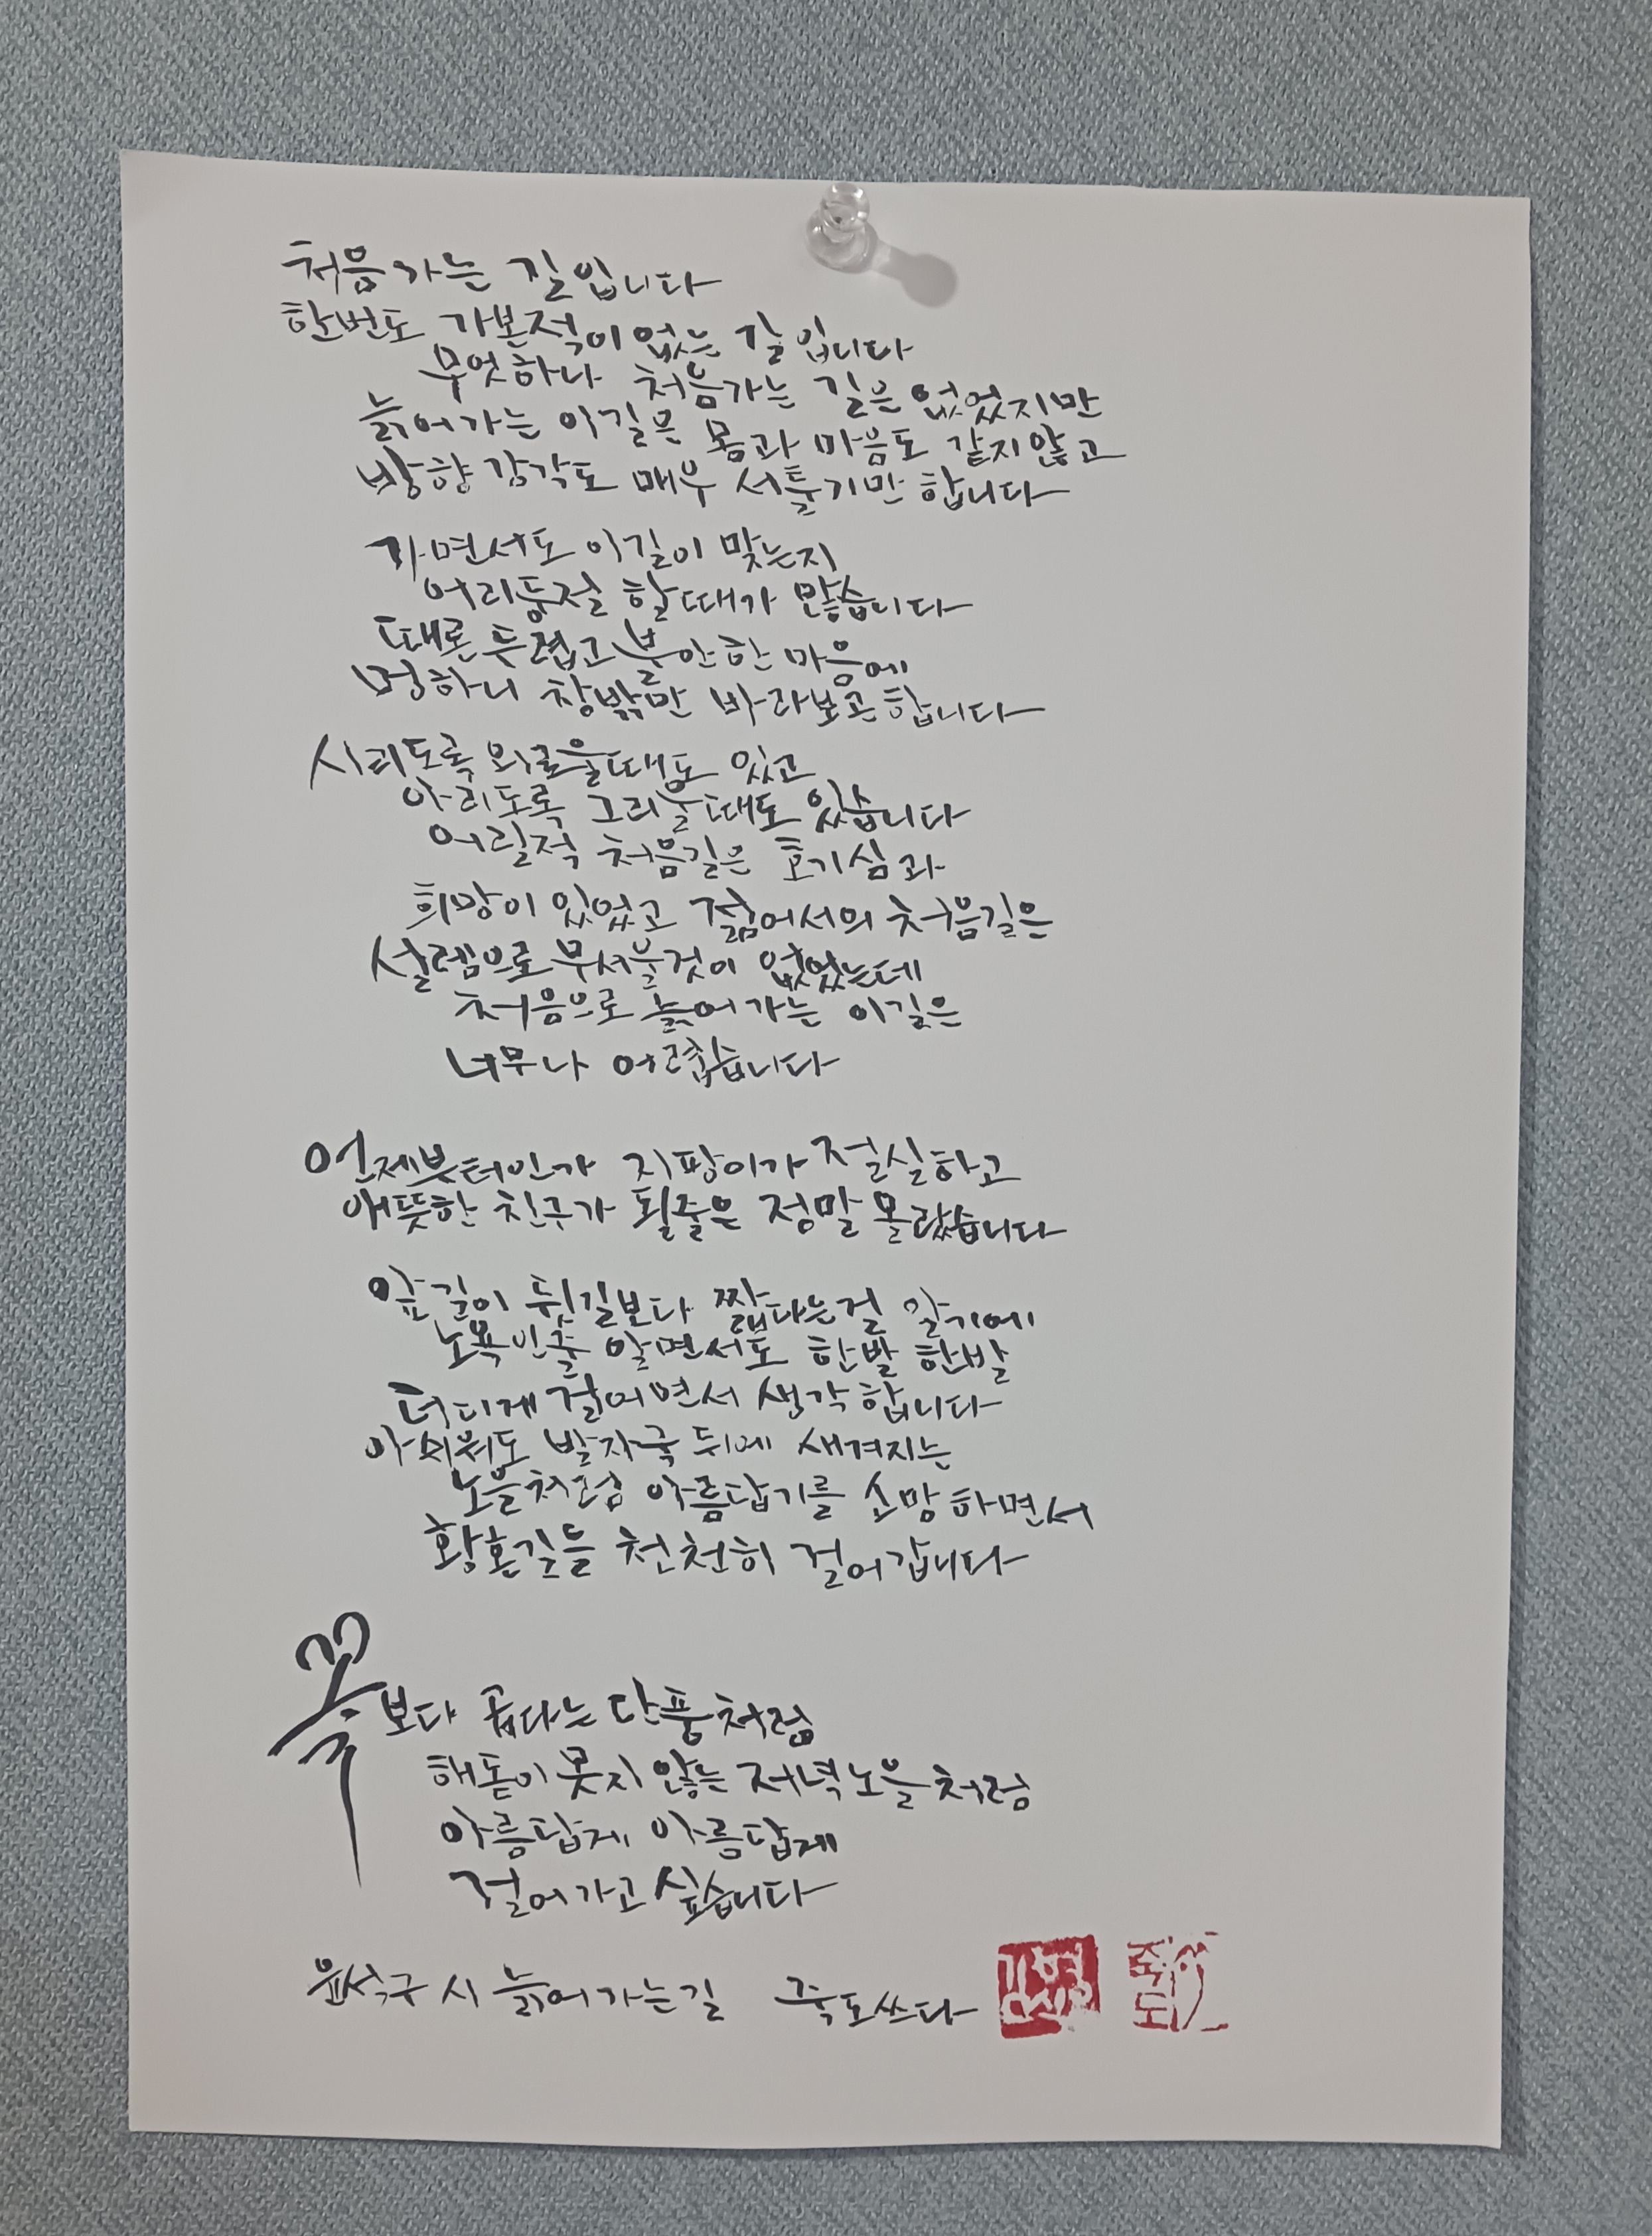 처음가는 길입니다
한번도 가본적이 없는 길입니다
무엇하나 처음가는 길은 없었지만
늙어가는 이길은 몸과 마음도 같지않고
방향감각도 매우 서툴기만 합니다
가면서도 이길이 맞는지
어리둥절 할때가 많습니다
때론 두렵고 불안한 마음에
멍하니 창밖만 바라보곤합니다
시리도록 외로울때도 있고
아리도록 그리울때도 있습니다
어릴적 처음길은 호기심과
희망이 있었고 젊어서의 처음길은
설렘으로 무서울것이 없었는데
처음으로 늙어가는 이길은
너무나 어렵습니다
언제부터인가 지팡이가 절실하고
애뜻한 친구가 될줄은 정말 몰랐습니다
앞길이 뒷길보다 짧다는걸 알기에
노욕인줄 알면서도 한발 한발
더디게 걸으면서 생각합니다
아쉬워도 발자국 뒤에 새겨지는
노을처럼 아름답기를 소망하면서
황혼길을 천천히 걸어갑니다
꽃보다 곱다는 단풍처럼
해돋이 못지 않는 저녁노을처럼
아름답게 아름답게
걸어가고 싶습니다
윤석구 시 늙어가는길 죽도쓰다
죽도